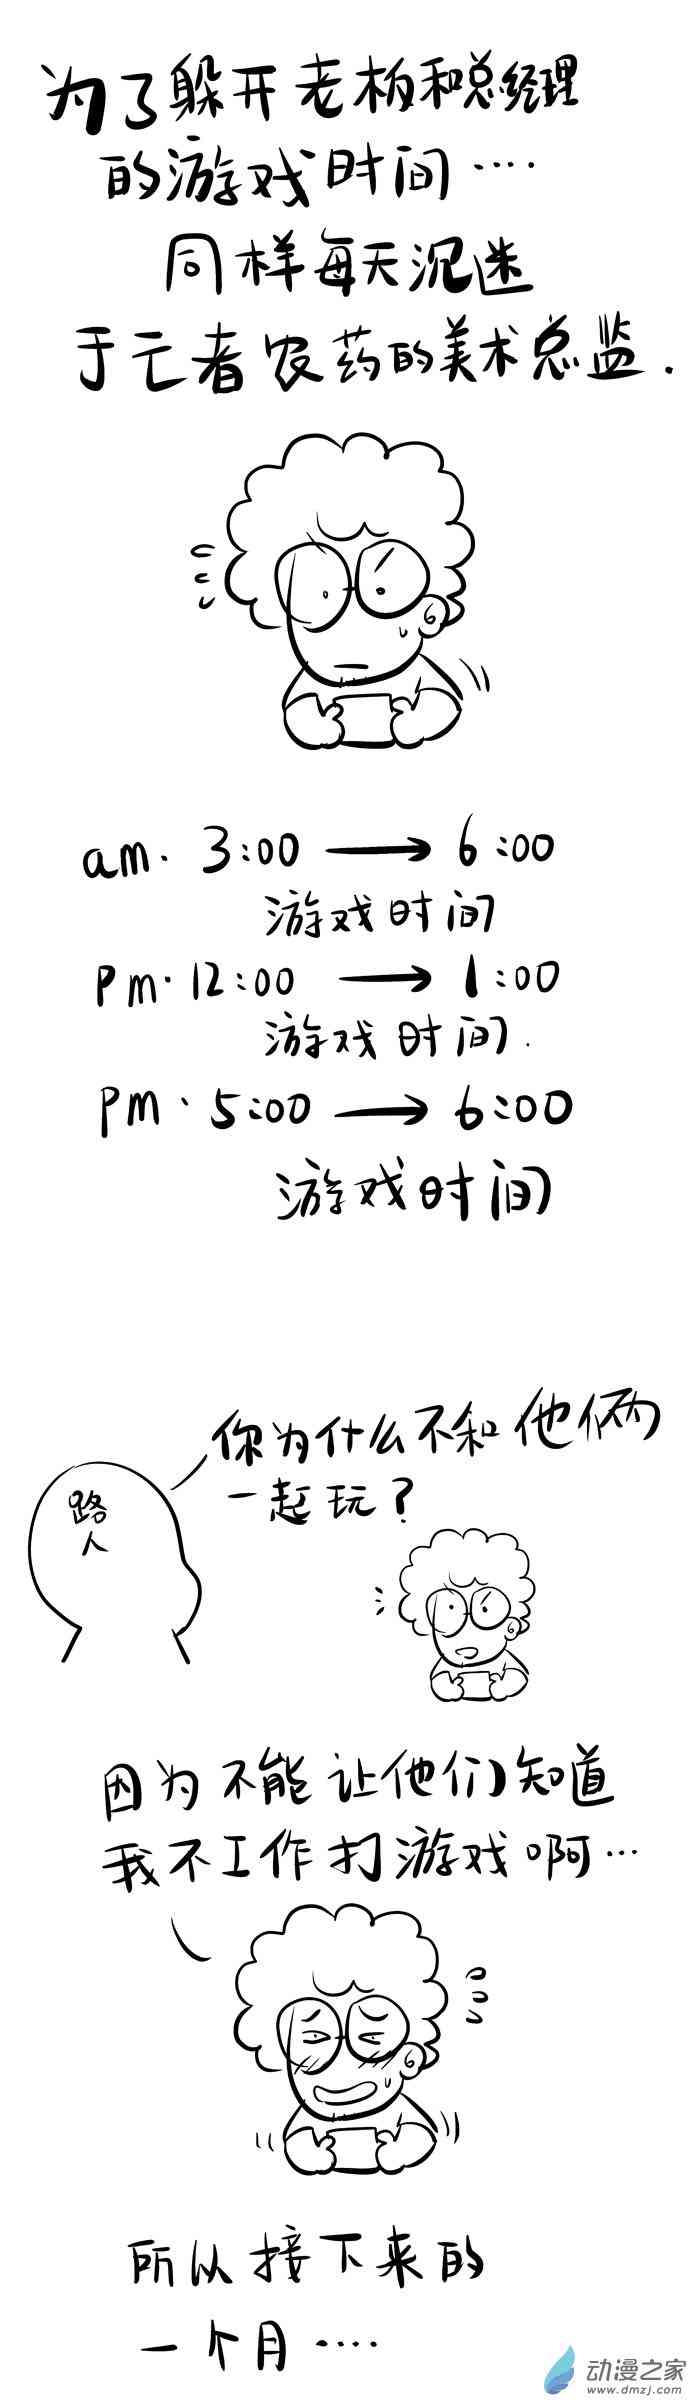 为了躲开老板和总经理
的游戏时间····
同样每天沉迷
于亡者农药的美术总监.
am. 3:00 → 6:00
游戏时间
Pm·12:00 → 1:00
游戏时间.
PM·5:00 → 6:00
游戏时间
你为什么不和他俩
一起玩?
路
人
因为不能让他们知道
我不工作打游戏啊···
所以接下来的
一个月····
动漫之家
www.dmzj.com